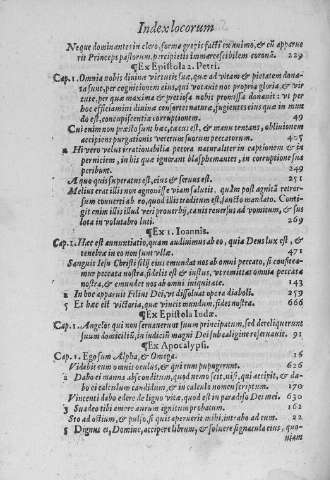 Index locorum
Neque dominantes in clero, forma gregis facti ex animo, & cū apparue
rit Princeps pastorum, precipietis immarcescibilem coronā. 229
¶Ex Epistola 2. Petri.
Cap. 1. Omnia nobis divinæ virtutis suæ, quæ ad vitam & pietatem dona-
ta sunt, per cognitionem eius, qui vocavit nos propria gloria & vir
tute, per quæ maxima & pretiosa nobis promissa donavit: vt per
hoc efficiamini divinæ consortes naturæ, fugientes eius quæ in mun
do est, concupiscentiæ corruptionem. 49
Cui enim non præsto sunt hæc, cæcus est, & manu tentans, oblivionem
accipiens purgationis veterum suorum peccatorum. 425
2 Hi vero velut irrationabilia pecora naturaliter in captionem & in
perniciem, in his quæ ignorant blasphemantes, in corruptione sua
peribunt. 249
A quo quis superatus est, eius & servus est. 251
Melius erat illis non agnoscere viam salutis, quàm post agnitā retror-
sum converti ab eo, quod illis traditum est, sancto mandato. Contin-
git enim illis illud veri proverbij, canis reversus ad vomitum, & sus
lota in volutabro luti. 269
¶Ex 1. Ioannis.
Cap. 1. Hæc est annuntiatio, quam audivimus ab eo, quia Deus lux est, &
tenebræ in eo non sunt vllæ. 471
Sanguis Iesu Christi filij eius emundat nos ab omni peccato, si confitea-
mur peccata nostra, fidelis est & iustus, vt remittat omnia peccata
nostra, & emundet nos ab omni iniquitate. 143
2 In hoc apparuit Filius Dei, vt dissolvat opera diaboli. 259
5 Et hæc est victoria, quæ vincit mundum, fides nostra. 666
¶Ex Epistola Iudæ.
Cap. 1. Angelos qui non servaverunt suum principatum, sed dereliquerunt
suum domicilium, in iudicium magni Dei sub caligine reservavit. 91
¶Ex Apocalypsi.
Cap. 1. Ego sum Alpha, & Omega. 16
Videbit eum omnis oculus, & qui eum pupugerunt. 626
2 Dabo ei manna absconditum, quod nemo scit, nisi, qui accipit, & da-
bo ei calculum candidum, & in calculo nomen scriptum. 170
Vincenti dabo edere de ligno vitæ, quod est in paradiso Dei mei. 630
3 Suadeo tibi emere aurum ignitum probatum. 162
Sto ad ostium, & pulso, si quis aperuerit mihi, intrabo ad eum. 22
5 Dignus es, Domine, accipere librum, & solvere signacula eius, quo-
niam